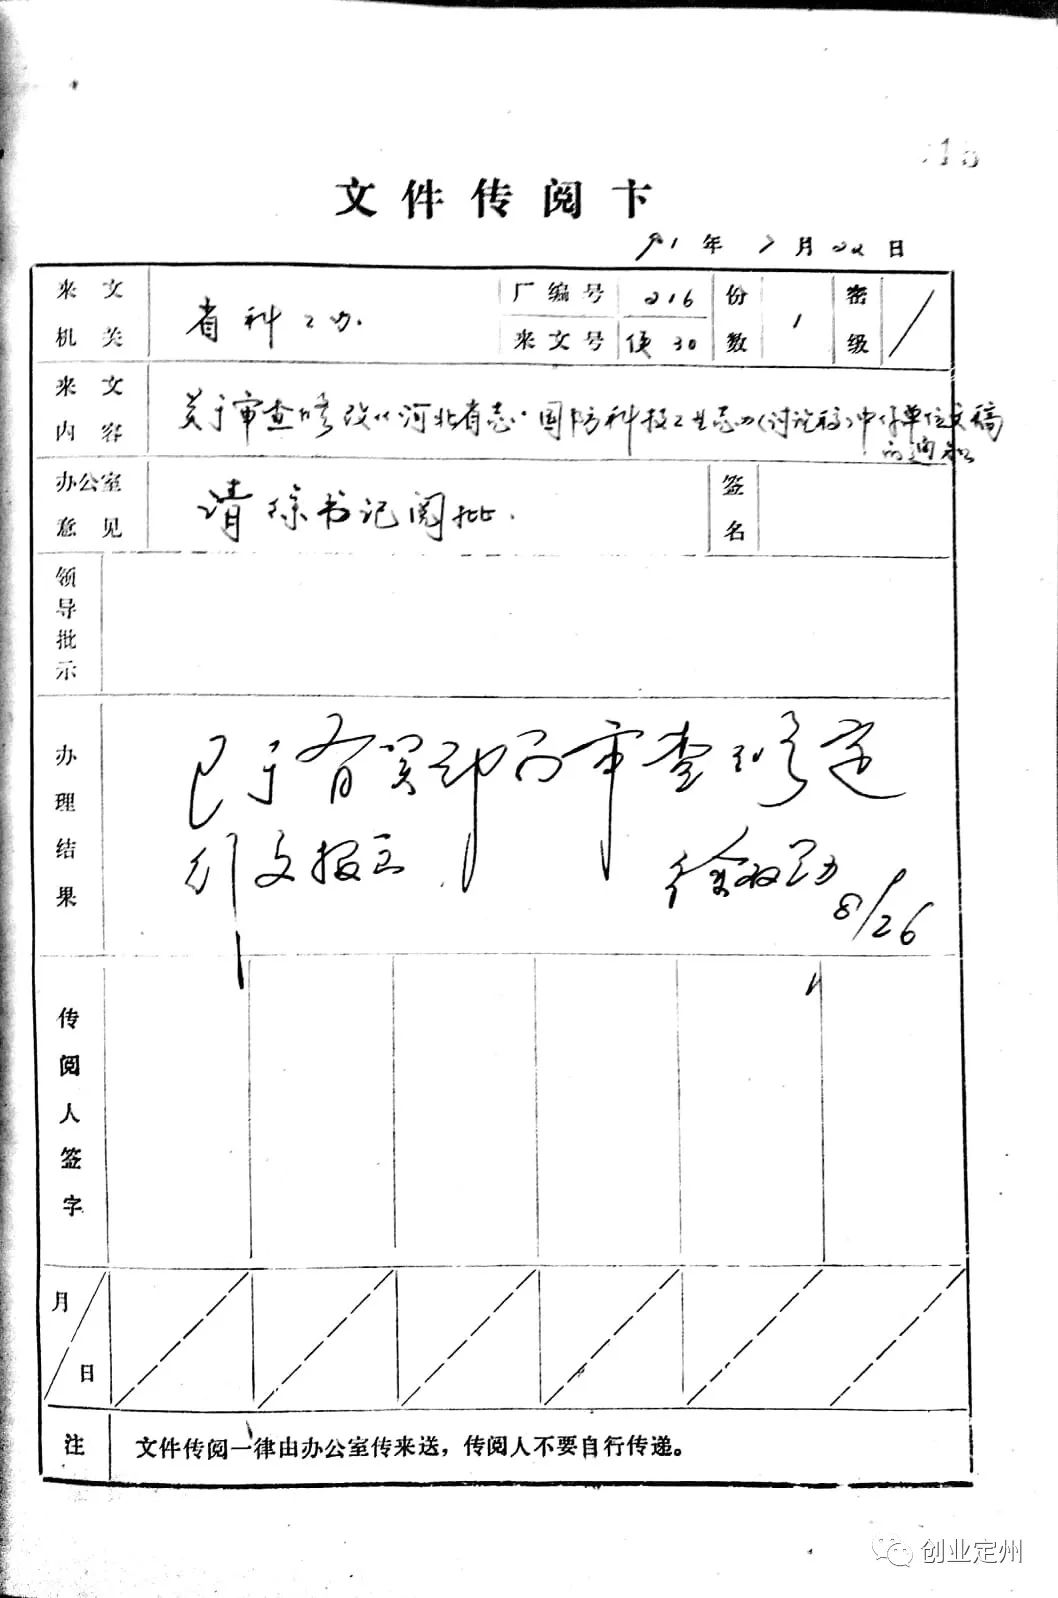 文件传阅卡
91年7月22日
来文机关
省科工办.
厂编号
216
份数
1
密级
/
来文号
便30
来文内容
关于审查修改《河北省志·国防科技工业志》(讨论稿)中你单位文稿
的通知
办公室意见
请徐书记阅批.
签名
领导批示
办理结果
已于有关部门审查修定
行文报
徐 8/26
传阅人签字
月
日
注
文件传阅一律由办公室传来送，传阅人不要自行传递。
创业定州